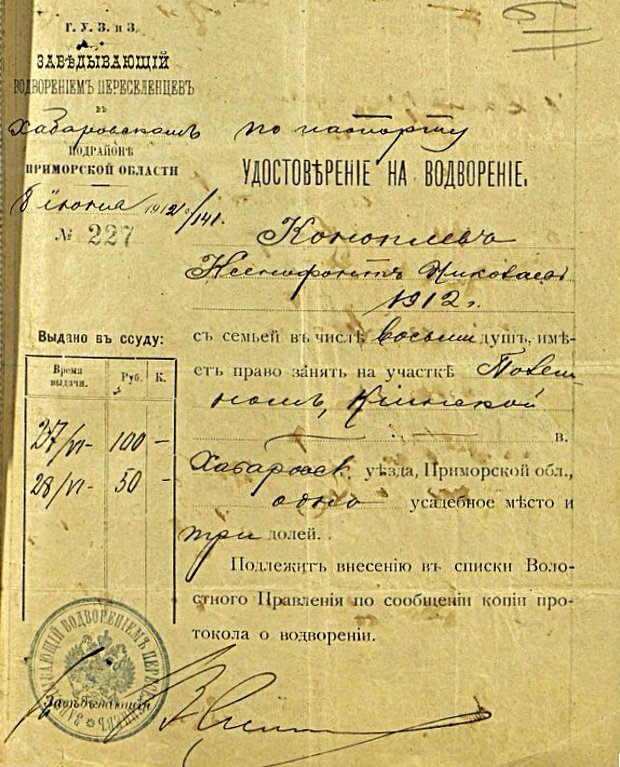 Г. У. З. и З.
ЗАВѢДЫВАЮЩІЙ
ВОДВОРЕНІЕМЪ ПЕРЕСЕЛЕНЦЕВЪ
въ
Хабаровскомъ
ПОДРАЙОНѢ
ПРИМОРСКОЙ ОБЛАСТИ
8 іюня 1912 г.
№ 227
по паспорту
УДОСТОВѢРЕНІЕ НА ВОДВОРЕНІЕ.
Коноплевъ
Ксенофонтъ Николаев
1912 г.
съ семьей въ числѣ восьми душъ, имѣ-
етъ право занять на участкѣ
Кіинской
в.
Хабаровск. уѣзда, Приморской обл.,
одно усадебное мѣсто и
три долей.
Подлежитъ внесенію въ списки Воло-
стного Правленія по сообщеніи копіи про-
токола о водвореніи.
Выдано въ ссуду:
Время выдачи. Руб. К.
27/VI- 100 -
28/VI- 50 -
Завѣдывающій